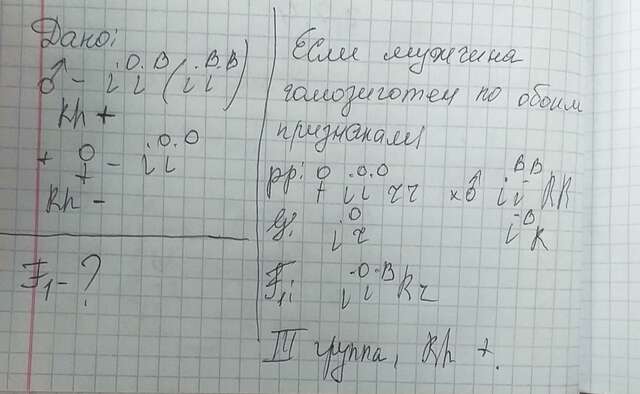 Дано:
♂ - i⁰ iᴮ (iᴮ iᴮ)
Rh +
+ ♀ - i⁰ i⁰
Rh -
F₁ - ?
Если мужчина
гомозиготен по обоим
признакам
pp: ♀ i⁰ i⁰ rr × ♂ iᴮ iᴮ RR
G: i⁰ r iᴮ R
F₁: i⁰ iᴮ Rr
III группа, Rh +.